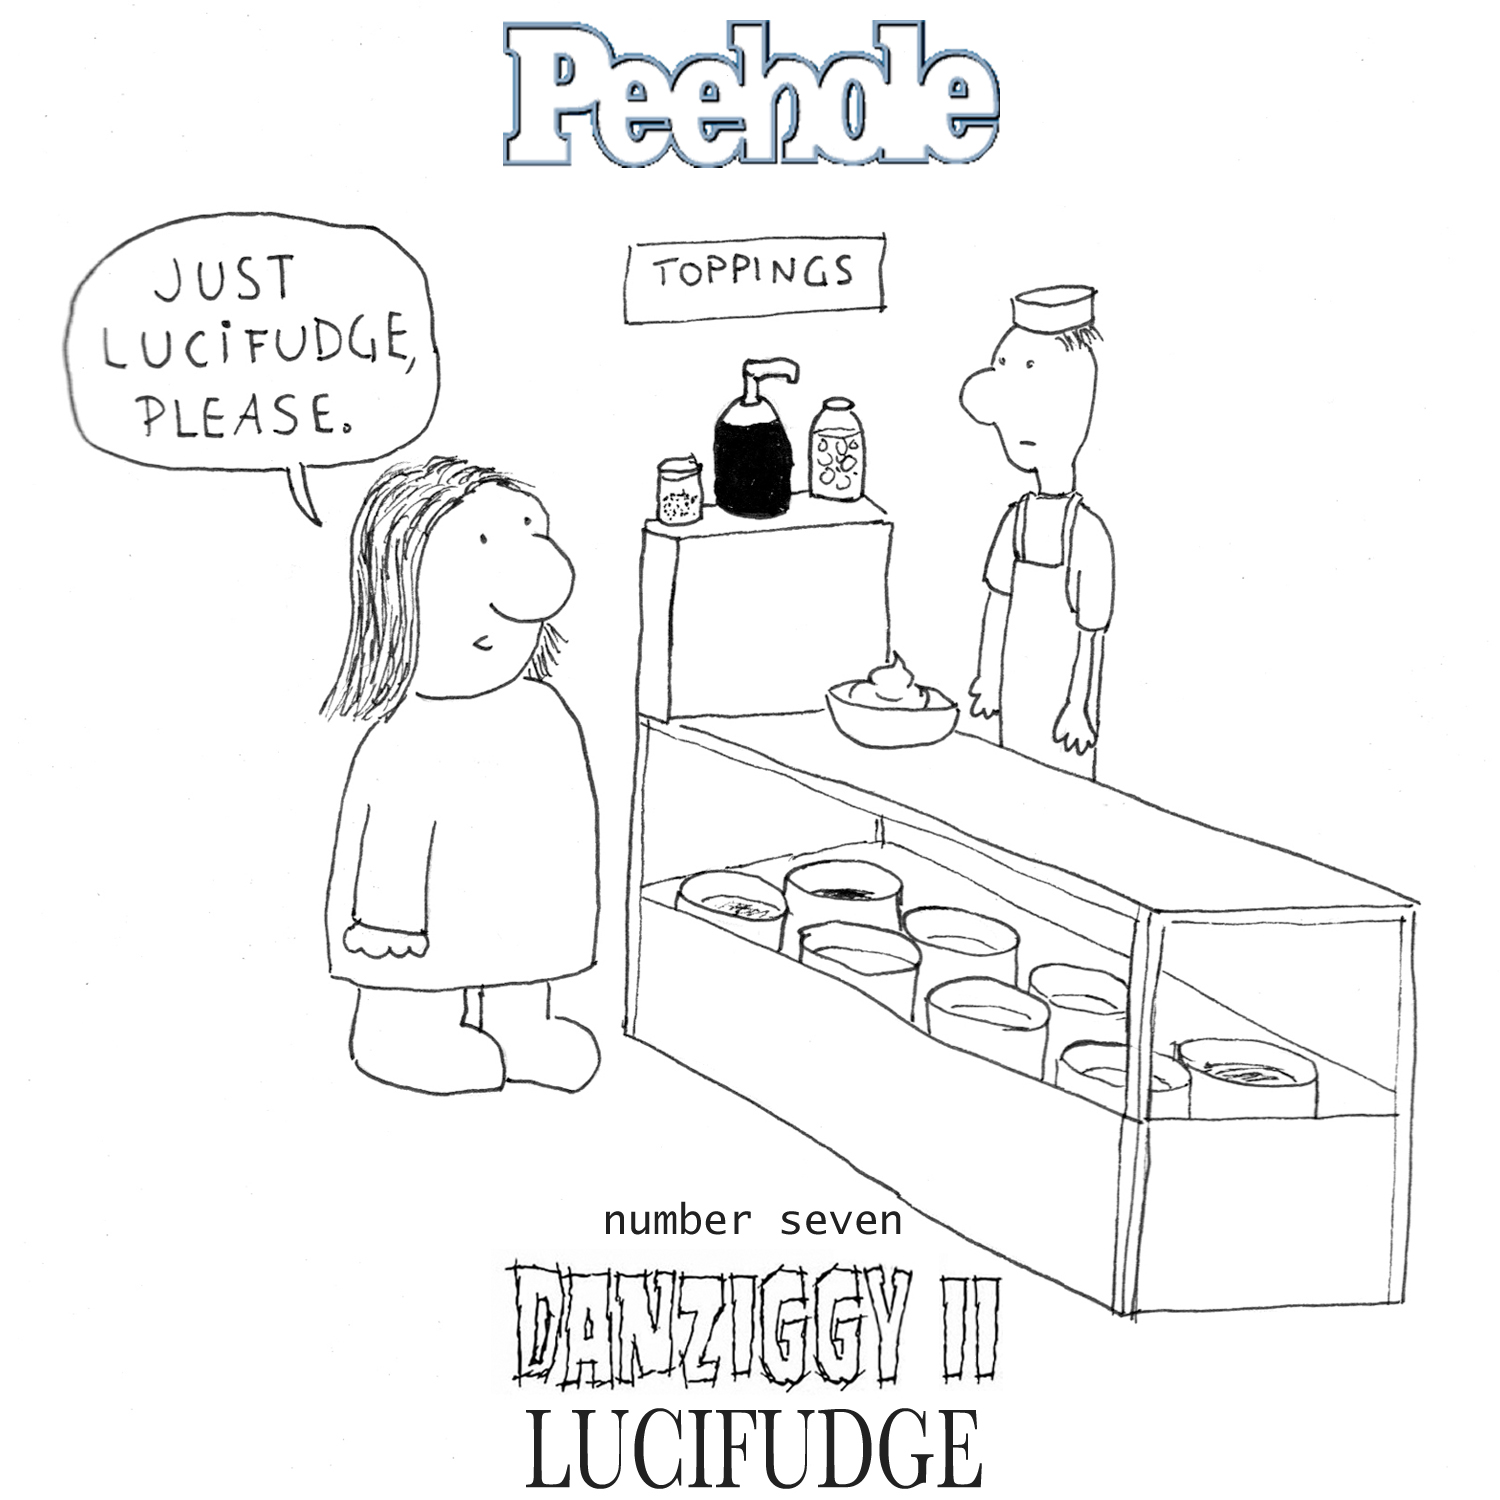 Peehole
TOPPINGS
JUST
LUCiFUDGE,
PLEASE.
number seven
DANZIGGY II
LUCIFUDGE